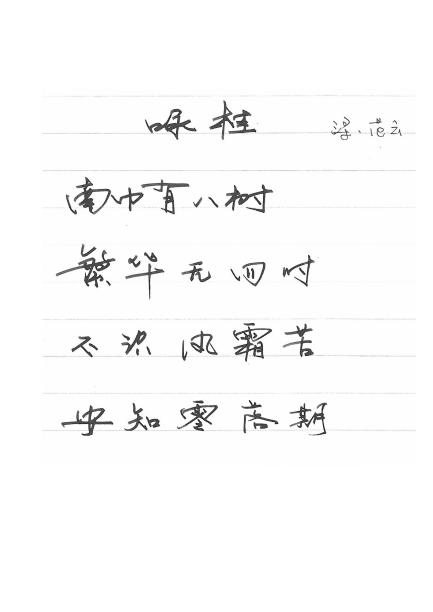 咏桂 梁·范云
南中有八树
繁华无四时
不识风霜苦
安知零落期